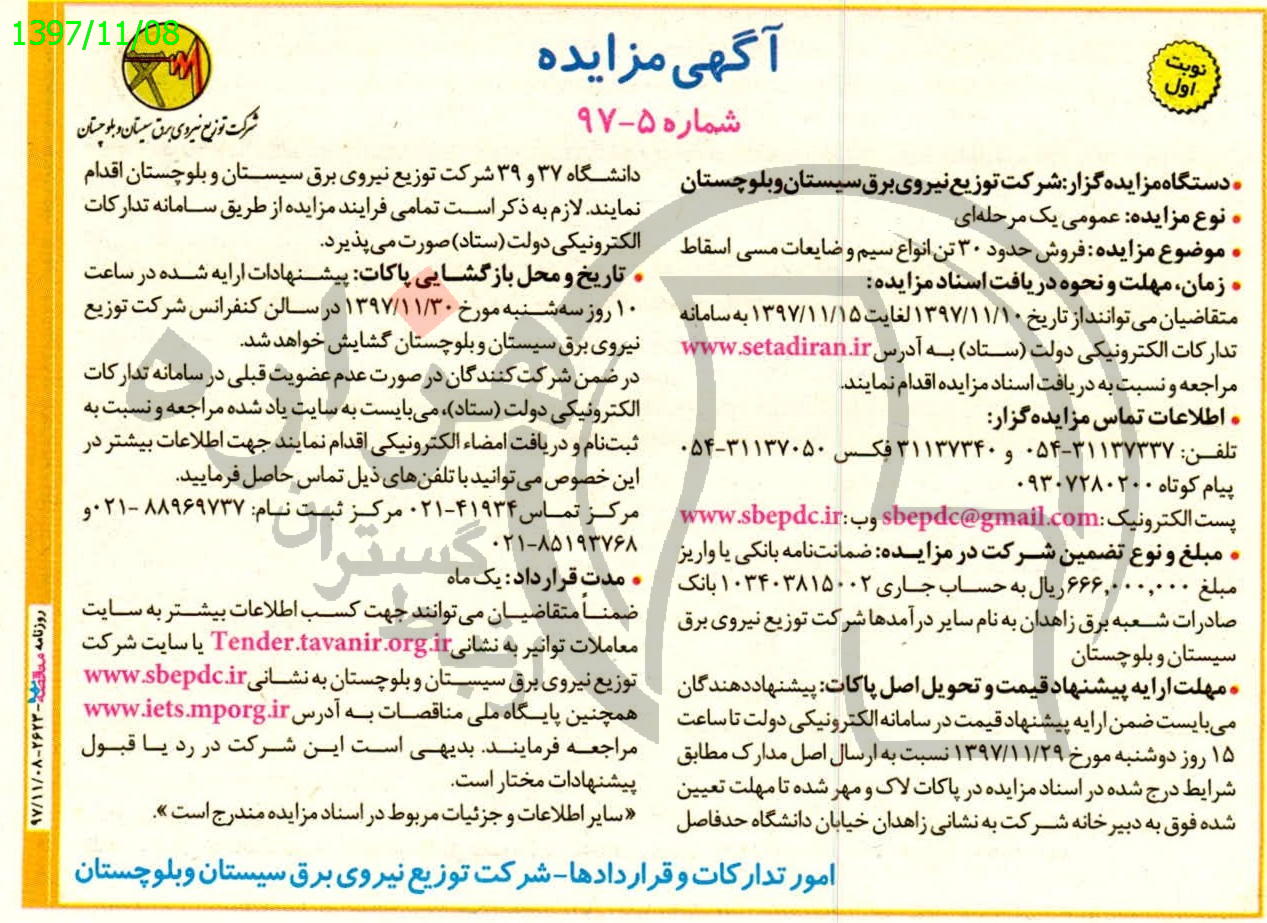 1397/11/08
آگهی مزایده
شماره ۵-۹۷
نوبت
اول
شرکت توزیع نیروی برق سیستان و بلوچستان
• دستگاه مزایده گزار: شرکت توزیع نیروی برق سیستان وبلوچستان
• نوع مزایده: عمومی یک مرحله‌ای
• موضوع مزایده: فروش حدود ۳۰ تن انواع سیم و ضایعات مسی اسقاط
• زمان، مهلت و نحوه دریافت اسناد مزایده:
متقاضیان می‌توانند از تاریخ ۱۳۹۷/۱۱/۱۰ لغایت ۱۳۹۷/۱۱/۱۵ به سامانه
تدارکات الکترونیکی دولت (ستاد) به آدرس www.setadiran.ir
مراجعه و نسبت به دریافت اسناد مزایده اقدام نمایند.
• اطلاعات تماس مزایده گزار:
تلفن: ۳۱۱۳۷۳۳۷-۰۵۴ و ۳۱۱۳۷۳۴۰ فکس ۳۱۱۳۷۰۵۰-۰۵۴
پیام کوتاه ۰۹۳۰۷۲۸۰۲۰۰
پست الکترونیک: sbepdc@gmail.com وب: www.sbepdc.ir
• مبلغ و نوع تضمین شرکت در مزایده: ضمانت‌نامه بانکی یا واریز
مبلغ ۶۶۶,۰۰۰,۰۰۰ ریال به حساب جاری ۱۰۳۴۰۳۸۱۵۰۰۲ بانک
صادرات شعبه برق زاهدان به نام سایر درآمدها شرکت توزیع نیروی برق
سیستان و بلوچستان
• مهلت ارایه پیشنهاد قیمت و تحویل اصل پاکات: پیشنهاددهندگان
می‌بایست ضمن ارایه پیشنهاد قیمت در سامانه الکترونیکی دولت تا ساعت
۱۵ روز دوشنبه مورخ ۱۳۹۷/۱۱/۲۹ نسبت به ارسال اصل مدارک مطابق
شرایط درج شده در اسناد مزایده در پاکات لاک و مهر شده تا مهلت تعیین
شده فوق به دبیرخانه شرکت به نشانی زاهدان خیابان دانشگاه حدفاصل
دانشگاه ۳۷ و ۳۹ شرکت توزیع نیروی برق سیستان و بلوچستان اقدام
نمایند. لازم به ذکر است تمامی فرایند مزایده از طریق سامانه تدارکات
الکترونیکی دولت (ستاد) صورت می‌پذیرد.
• تاریخ و محل بازگشایی پاکات: پیشنهادات ارایه شده در ساعت
۱۰ روز سه‌شنبه مورخ ۱۳۹۷/۱۱/۳۰ در سالن کنفرانس شرکت توزیع
نیروی برق سیستان و بلوچستان گشایش خواهد شد.
در ضمن شرکت‌کنندگان در صورت عدم عضویت قبلی در سامانه تدارکات
الکترونیکی دولت (ستاد)، می‌بایست به سایت یاد شده مراجعه و نسبت به
ثبت‌نام و دریافت امضاء الکترونیکی اقدام نمایند جهت اطلاعات بیشتر در
این خصوص می‌توانید با تلفن‌های ذیل تماس حاصل فرمایید.
مرکز تماس ۴۱۹۳۴-۰۲۱ مرکز ثبت نام: ۸۸۹۶۹۷۳۷ -۰۲۱ و
۸۵۱۹۳۷۶۸-۰۲۱
• مدت قرارداد: یک ماه
ضمناً متقاضیان می‌توانند جهت کسب اطلاعات بیشتر به سایت
معاملات توانیر به نشانی Tender.tavanir.org.ir یا سایت شرکت
توزیع نیروی برق سیستان و بلوچستان به نشانی www.sbepdc.ir
همچنین پایگاه ملی مناقصات به آدرس www.iets.mporg.ir
مراجعه فرمایند. بدیهی است این شرکت در رد یا قبول
پیشنهادات مختار است.
«سایر اطلاعات و جزئیات مربوط در اسناد مزایده مندرج است».
امور تدارکات و قراردادها-شرکت توزیع نیروی برق سیستان وبلوچستان
روزنامه مناقصه -۲۶۱۳-۹۷/۱۱/۰۸
هزاره
گستران